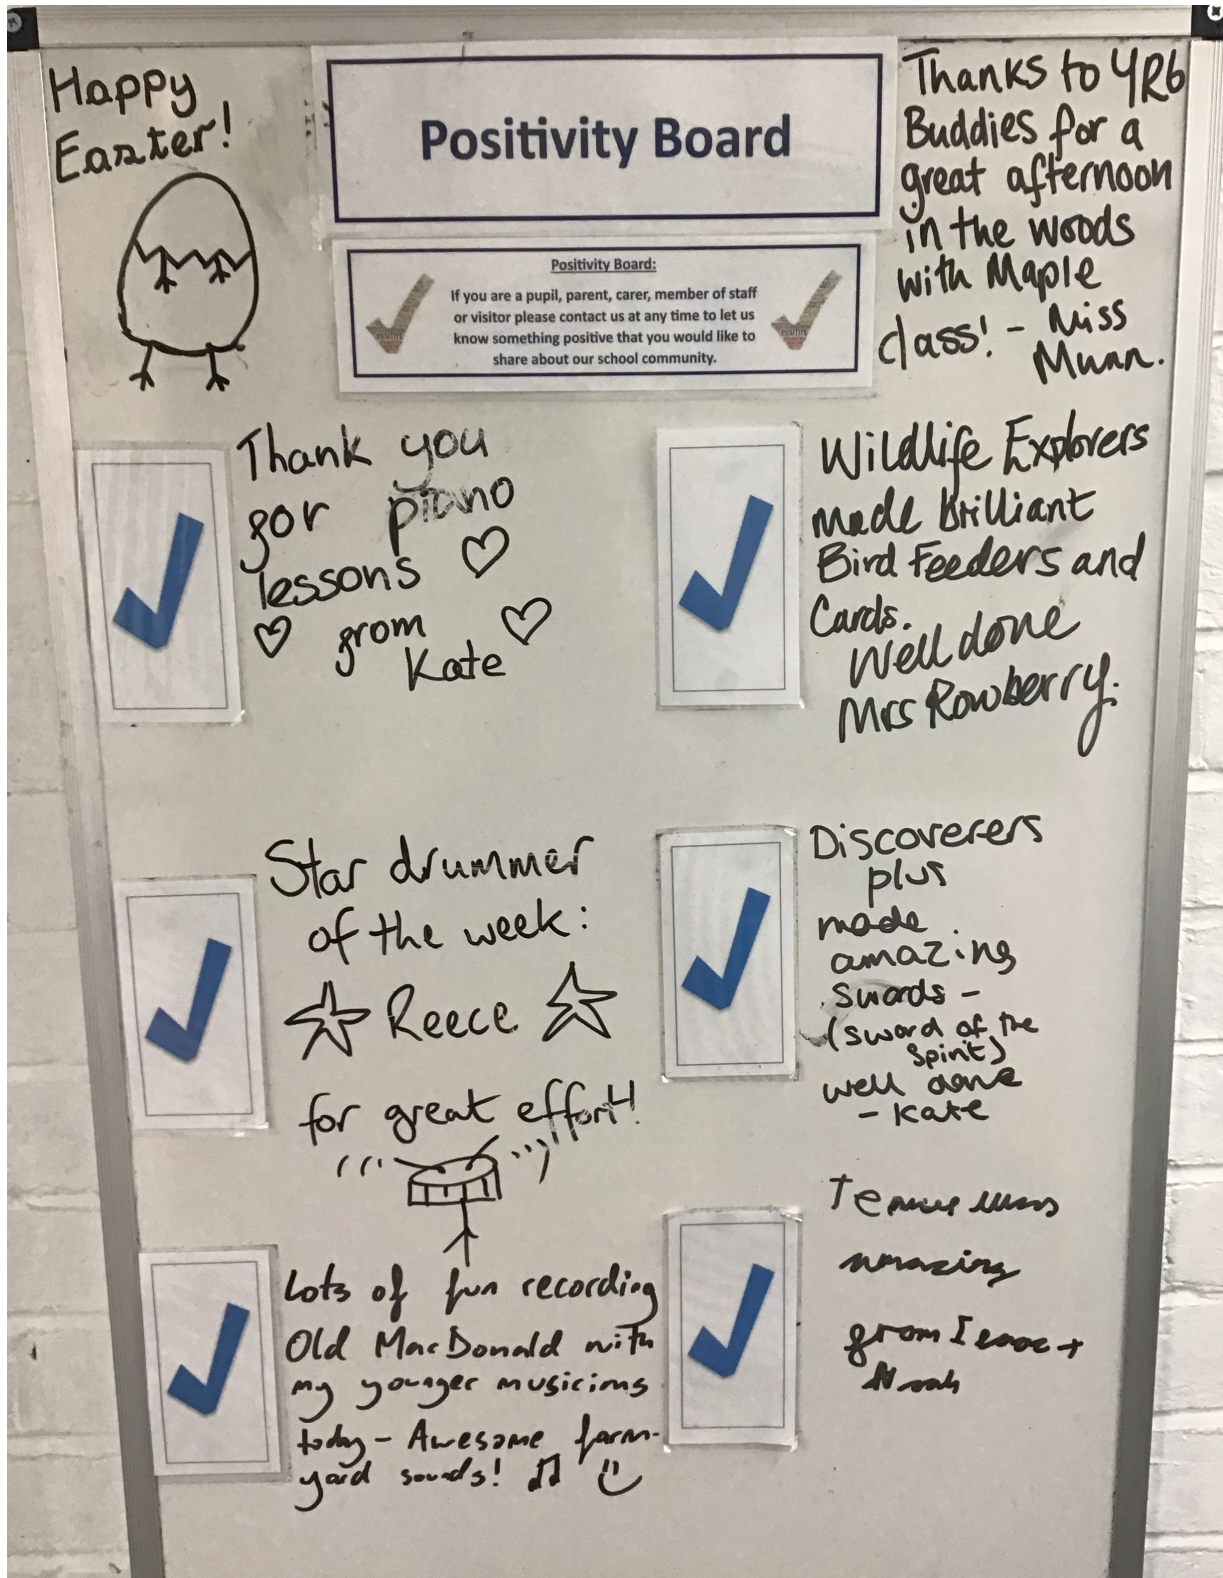 Happy
Easter!
Positivity Board
Positivity Board:
If you are a pupil, parent, carer, member of staff
or visitor please contact us at any time to let us
know something positive that you would like to
share about our school community.
Thanks to YR6
Buddies for a
great afternoon
in the woods
with Maple
class! - Miss
Munn.
Thank you
for piano
lessons
from
Kate
Wildlife Explorers
made brilliant
Bird Feeders and
Cards.
Well done
Mrs Rowberry.
Star drummer
of the week:
Reece
for great effort!
Discoverers
plus
made
amazing
swords -
(sword of the
Spirit)
well done
- Kate
Lots of fun recording
Old MacDonald with
my younger musicians
today - Awesome farm-
yard sounds!
amazing
from Isaac +
Noah